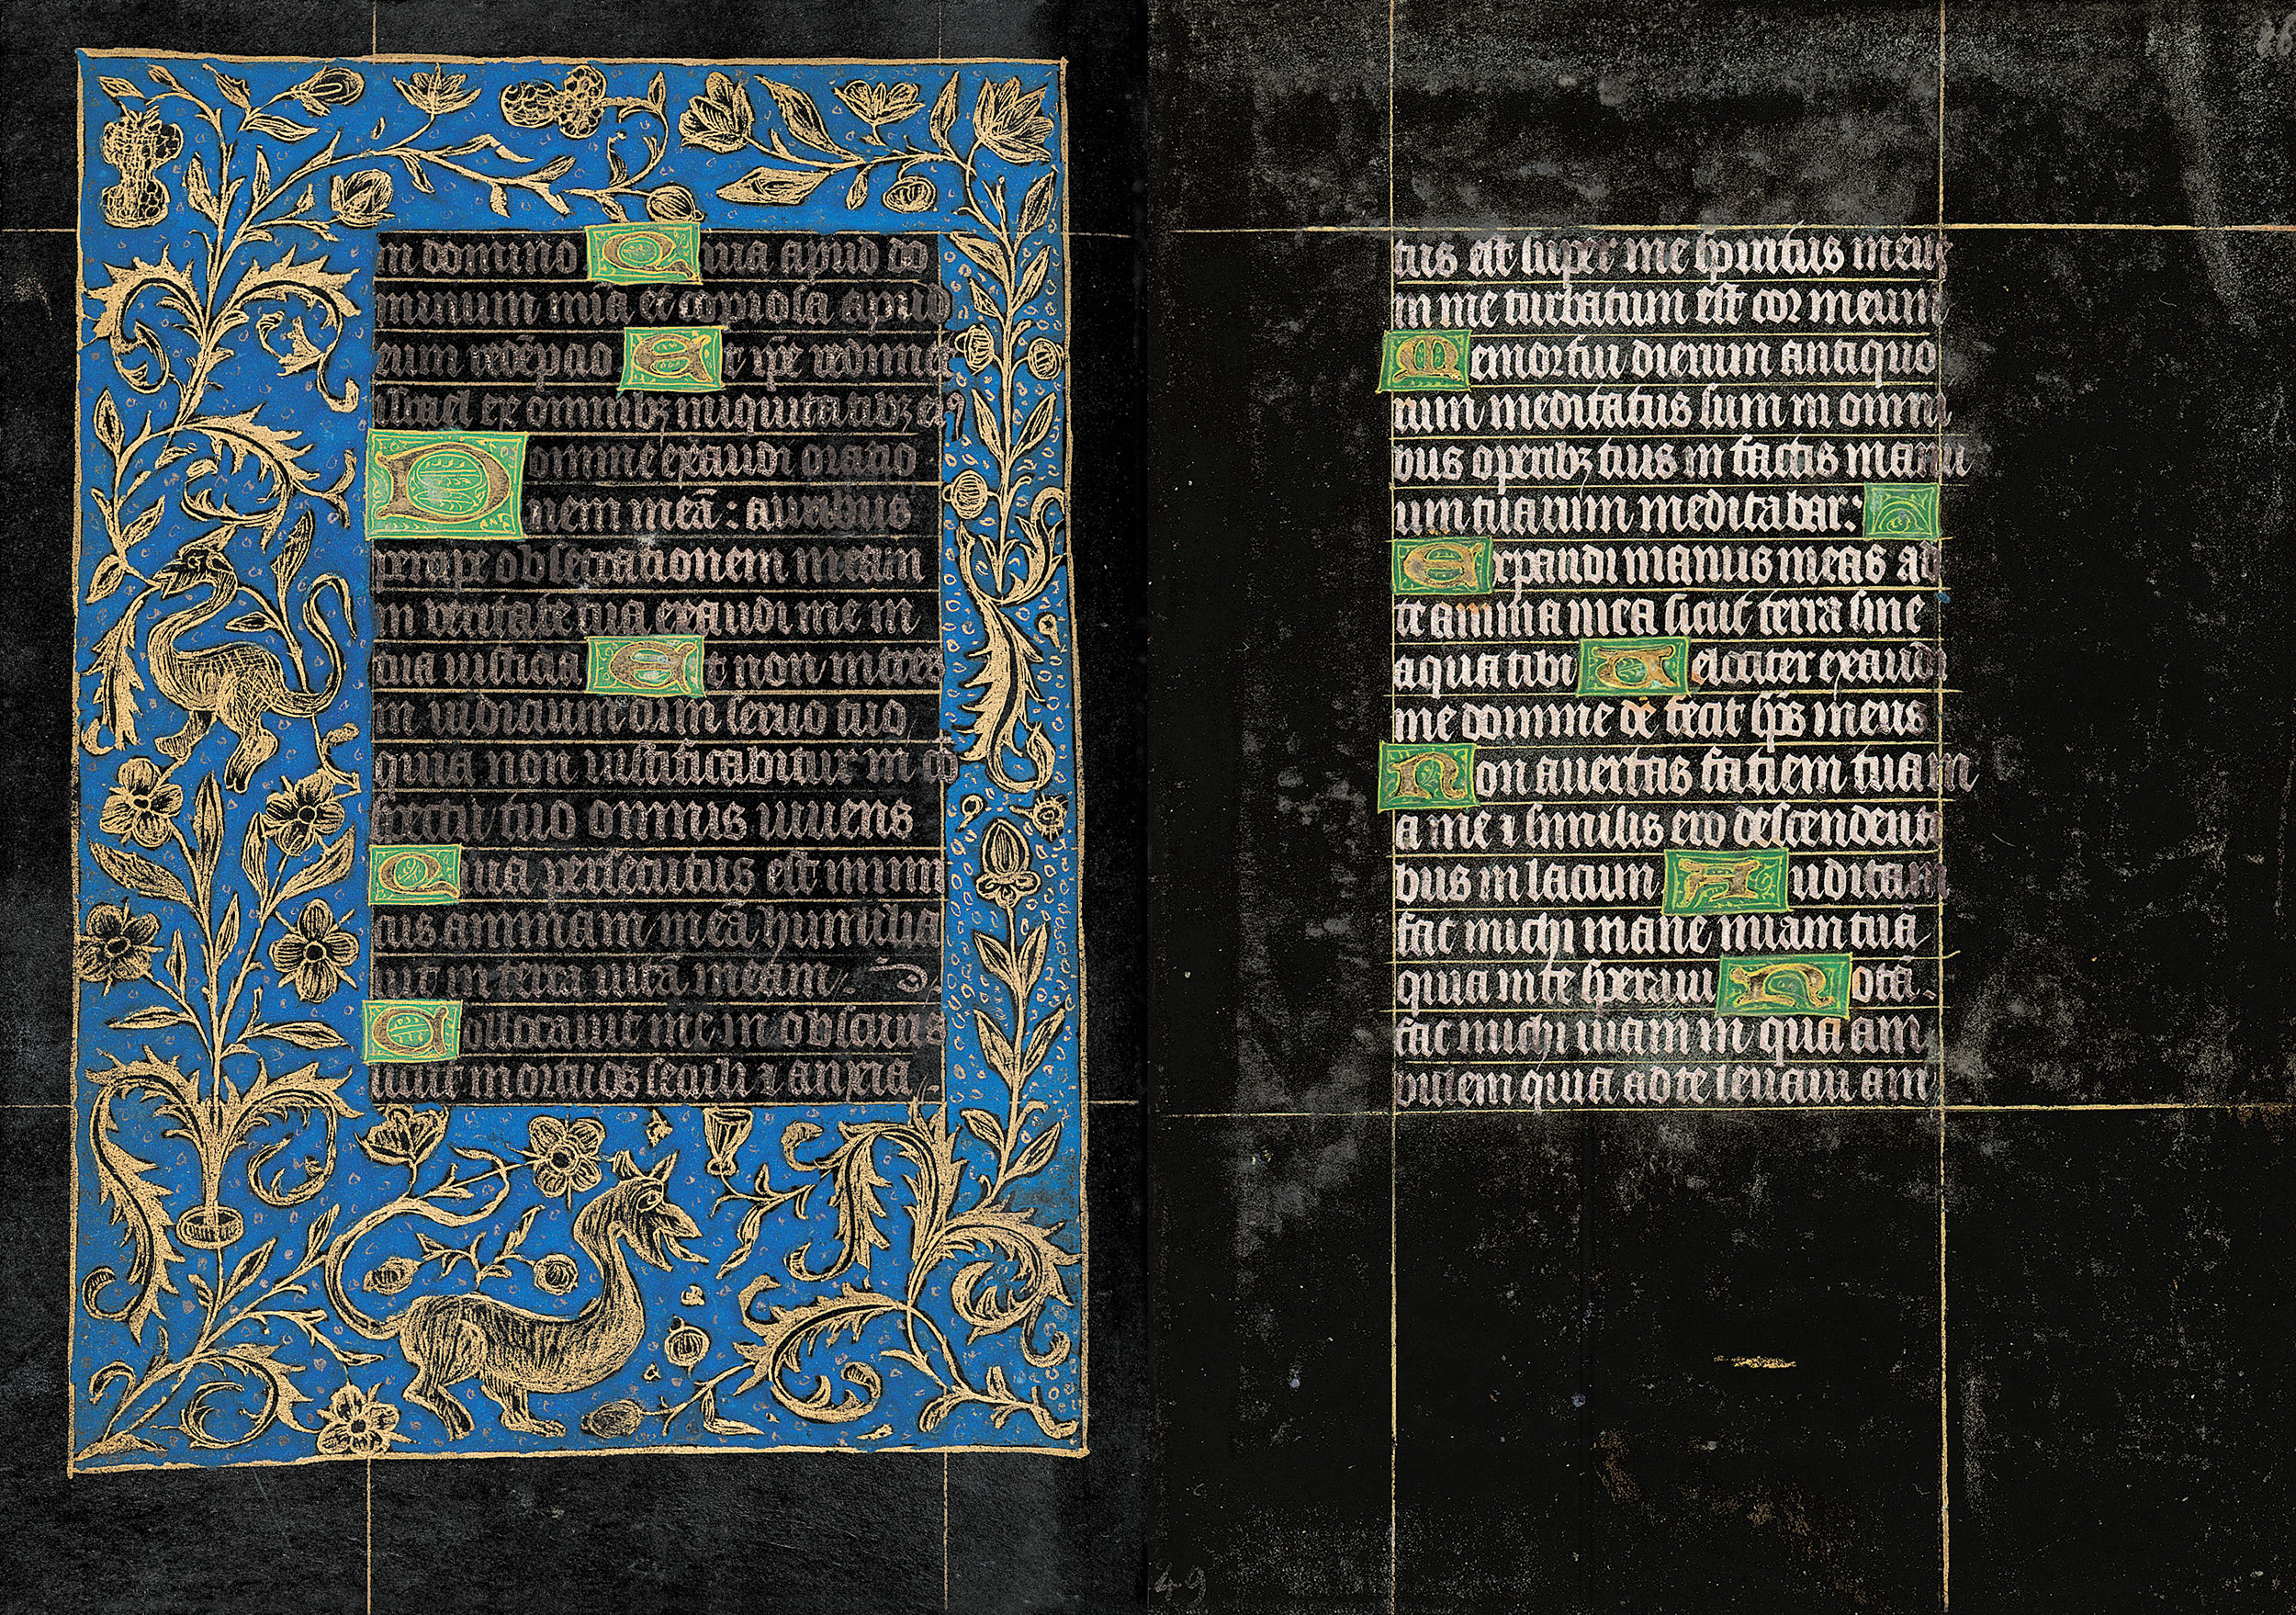 in domino Quia apud do
minum mia et copiosa apud
eum redēpcio Et ipe redimet
israel ex omnibȝ iniquitatibȝ eiꝰ
Domine exaudi oratio
nem meā : auribus
percipe obsecrationem meam
in veritate tua exaudi me in
tua iusticia Et non intres
in iudicium cum seruo tuo
quia non iustificabitur in cō
spectu tuo omnis viuens
Quia persecutus est inimi
cus animam meā humilia
uit in terra uitā meam
Collocauit me in obscuris
sicut mortuos seculi ⁊ anxia
tus est super me spiritus meus
in me turbatum est cor meum
Memor fui dierum antiquo
rum meditatus sum in omni
bus operibȝ tuis in factis manu
um tuarum meditabar:
Expandi manus meas ad
te anima mea sicut terra sine
aqua tibi Velociter exaudi
me domine de fecit sps meus
Non auertas faciem tuam
a me ⁊ similis ero descendenti
bus in lacum Auditam
fac michi mane miam tuā
quia in te speraui Notā
fac michi uiam in qua am
bulem quia ad te leuaui am
49